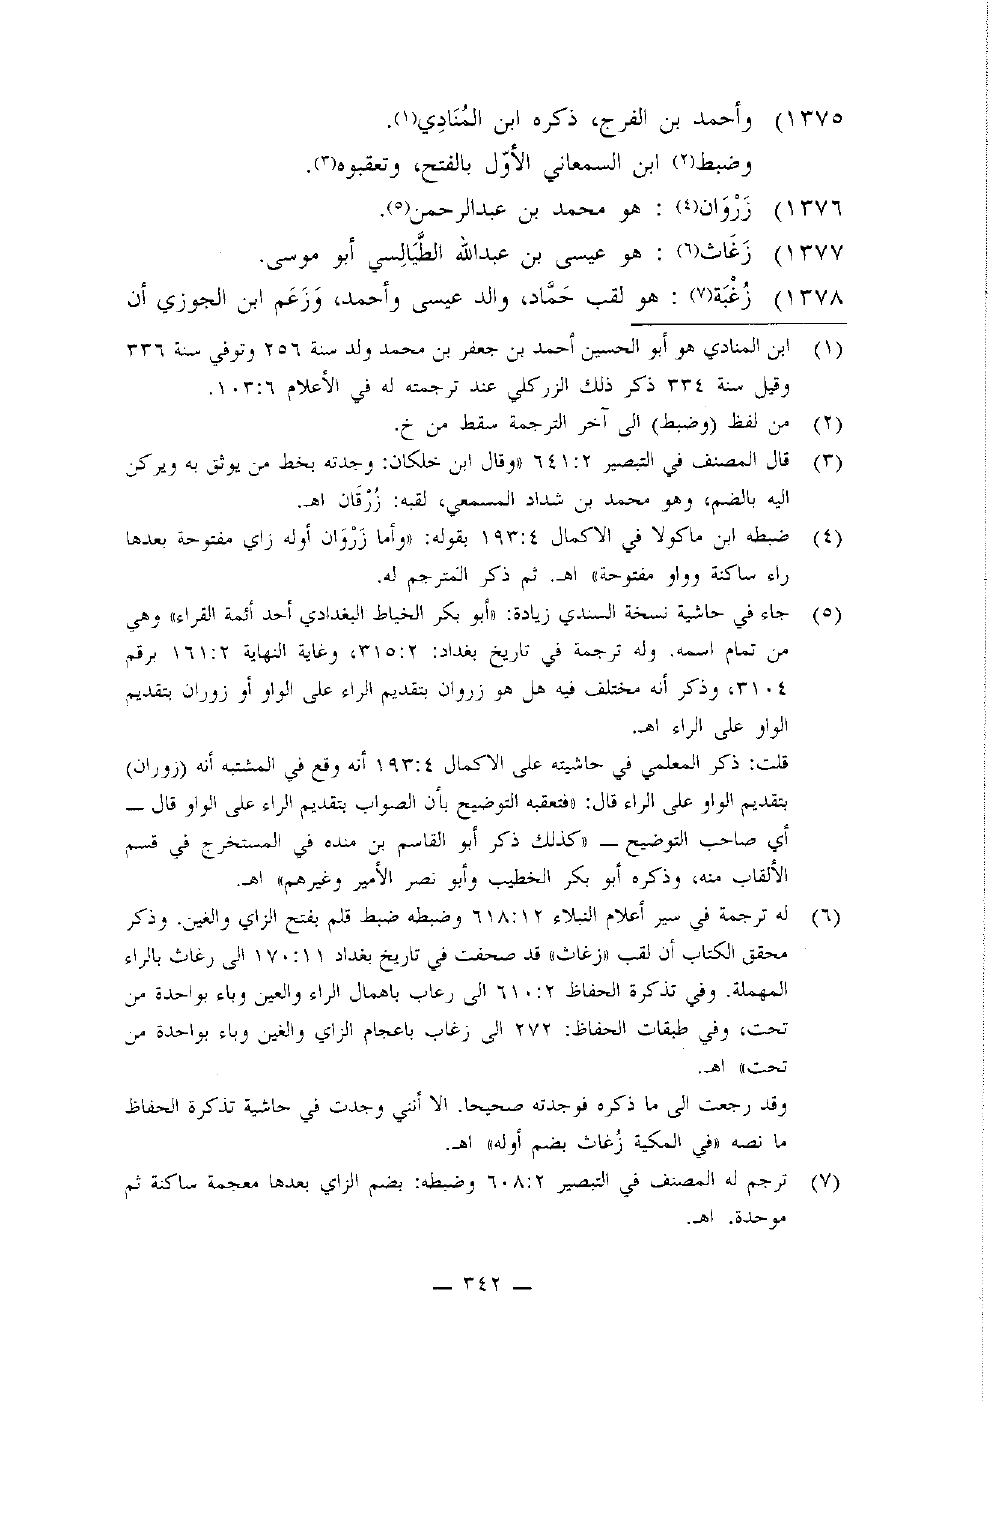 ١٣٧٥) وأحمد بن الفرج، ذكره ابن المُنَادِي(١).
وضبط(٢) ابن السمعاني الأوّل بالفتح، وتعقبوه(٣).
١٣٧٦) زَرْوَان(٤) : هو محمد بن عبدالرحمن(٥).
١٣٧٧) زَغَاث(٦) : هو عيسى بن عبدالله الطَّيَالِسي أبو موسى.
١٣٧٨) زُغْبَة(٧) : هو لقب حَمَّاد، والد عيسى وأحمد، وَزَعَم ابن الجوزي أن
(١) ابن المنادي هو أبو الحسين أحمد بن جعفر بن محمد ولد سنة ٢٥٦ وتوفي سنة ٣٣٦
وقيل سنة ٣٣٤ ذكر ذلك الزركلي عند ترجمته له في الأعلام ١٠٣:٦.
(٢) من لفظ (وضبط) الى آخر الترجمة سقط من خ.
(٣) قال المصنف في التبصير ٦٤١:٢ «وقال ابن خلكان: وجدته بخط من يوثق به ويركن
اليه بالضم، وهو محمد بن شداد المسمعي، لقبه: زُرْقَان اهـ.
(٤) ضبطه ابن ماكولا في الاكمال ١٩٣:٤ بقوله: «وأما زَرْوَان أوله زاي مفتوحة بعدها
راء ساكنة وواو مفتوحة» اهـ. ثم ذكر المترجم له.
(٥) جاء في حاشية نسخة السندي زيادة: «أبو بكر الخياط البغدادي أحد أئمة القراء» وهي
من تمام اسمه. وله ترجمة في تاريخ بغداد: ٣١٥:٢، وغاية النهاية ١٦١:٢ برقم
٣١٠٤، وذكر أنه مختلف فيه هل هو زروان بتقديم الراء على الواو أو زوران بتقديم
الواو على الراء اهـ.
قلت: ذكر المعلمي في حاشيته على الاكمال ١٩٣:٤ أنه وقع في المشتبه أنه (زوران)
بتقديم الواو على الراء قال: «فتعقبه التوضيح بأن الصواب بتقديم الراء على الواو قال —
أي صاحب التوضيح — «كذلك ذكر أبو القاسم بن منده في المستخرج في قسم
الألقاب منه، وذكره أبو بكر الخطيب وأبو نصر الأمير وغيرهم» اهـ.
(٦) له ترجمة في سير أعلام النبلاء ٦١٨:١٢ وضبطه ضبط قلم بفتح الزاي والغين. وذكر
محقق الكتاب أن لقب «زغاث» قد صحفت في تاريخ بغداد ١٧٠:١١ الى رغاث بالراء
المهملة. وفي تذكرة الحفاظ ٦١٠:٢ الى رعاب باهمال الراء والعين وباء بواحدة من
تحت، وفي طبقات الحفاظ: ٢٧٢ الى زغاب باعجام الزاي والغين وباء بواحدة من
تحت» اهـ.
وقد رجعت الى ما ذكره فوجدته صحيحا. الا أنني وجدت في حاشية تذكرة الحفاظ
ما نصه «في المكية زُغاث بضم أوله» اهـ.
(٧) ترجم له المصنف في التبصير ٦٠٨:٢ وضبطه: بضم الزاي بعدها معجمة ساكنة ثم
موحدة. اهـ.
— ٣٤٢ —